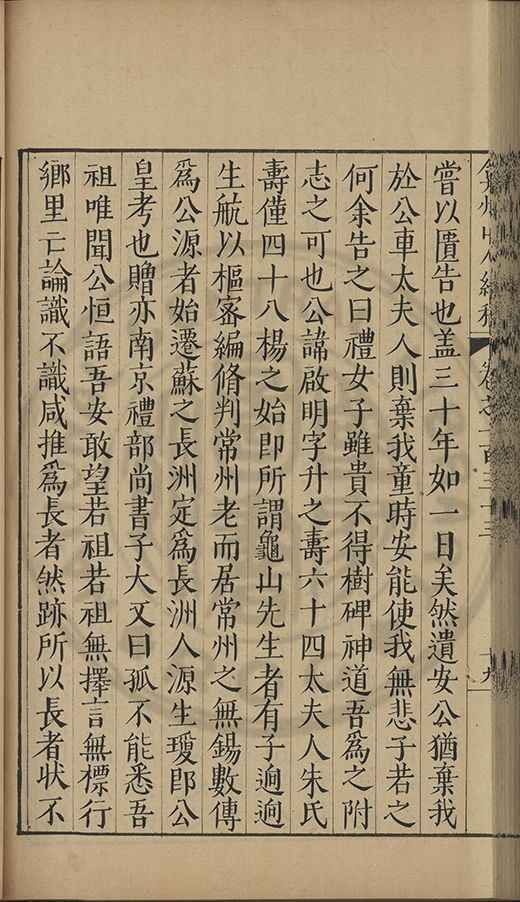 嘗以匱告也盖三十年如一日矣然遺安公猶棄我
於公車太夫人則棄我童時安能使我無悲子若之
何余告之曰禮女子雖貴不得樹碑神道吾爲之附
志之可也公諱啟明字升之壽六十四太夫人朱氏
壽僅四十八楊之始即所謂龜山先生者有子逈逈
生航以樞宻編脩判常州老而居常州之無錫數傳
爲公源者始遷蘇之長洲定爲長洲人源生瓊卽公
皇考也贈亦南京禮部尚書子大又曰孤不能悉吾
祖唯聞公恒語吾安敢望若祖若祖無擇言無標行
鄉里亡論識不識咸推爲長者然跡所以長者狀不
卷之一百三十三
十九